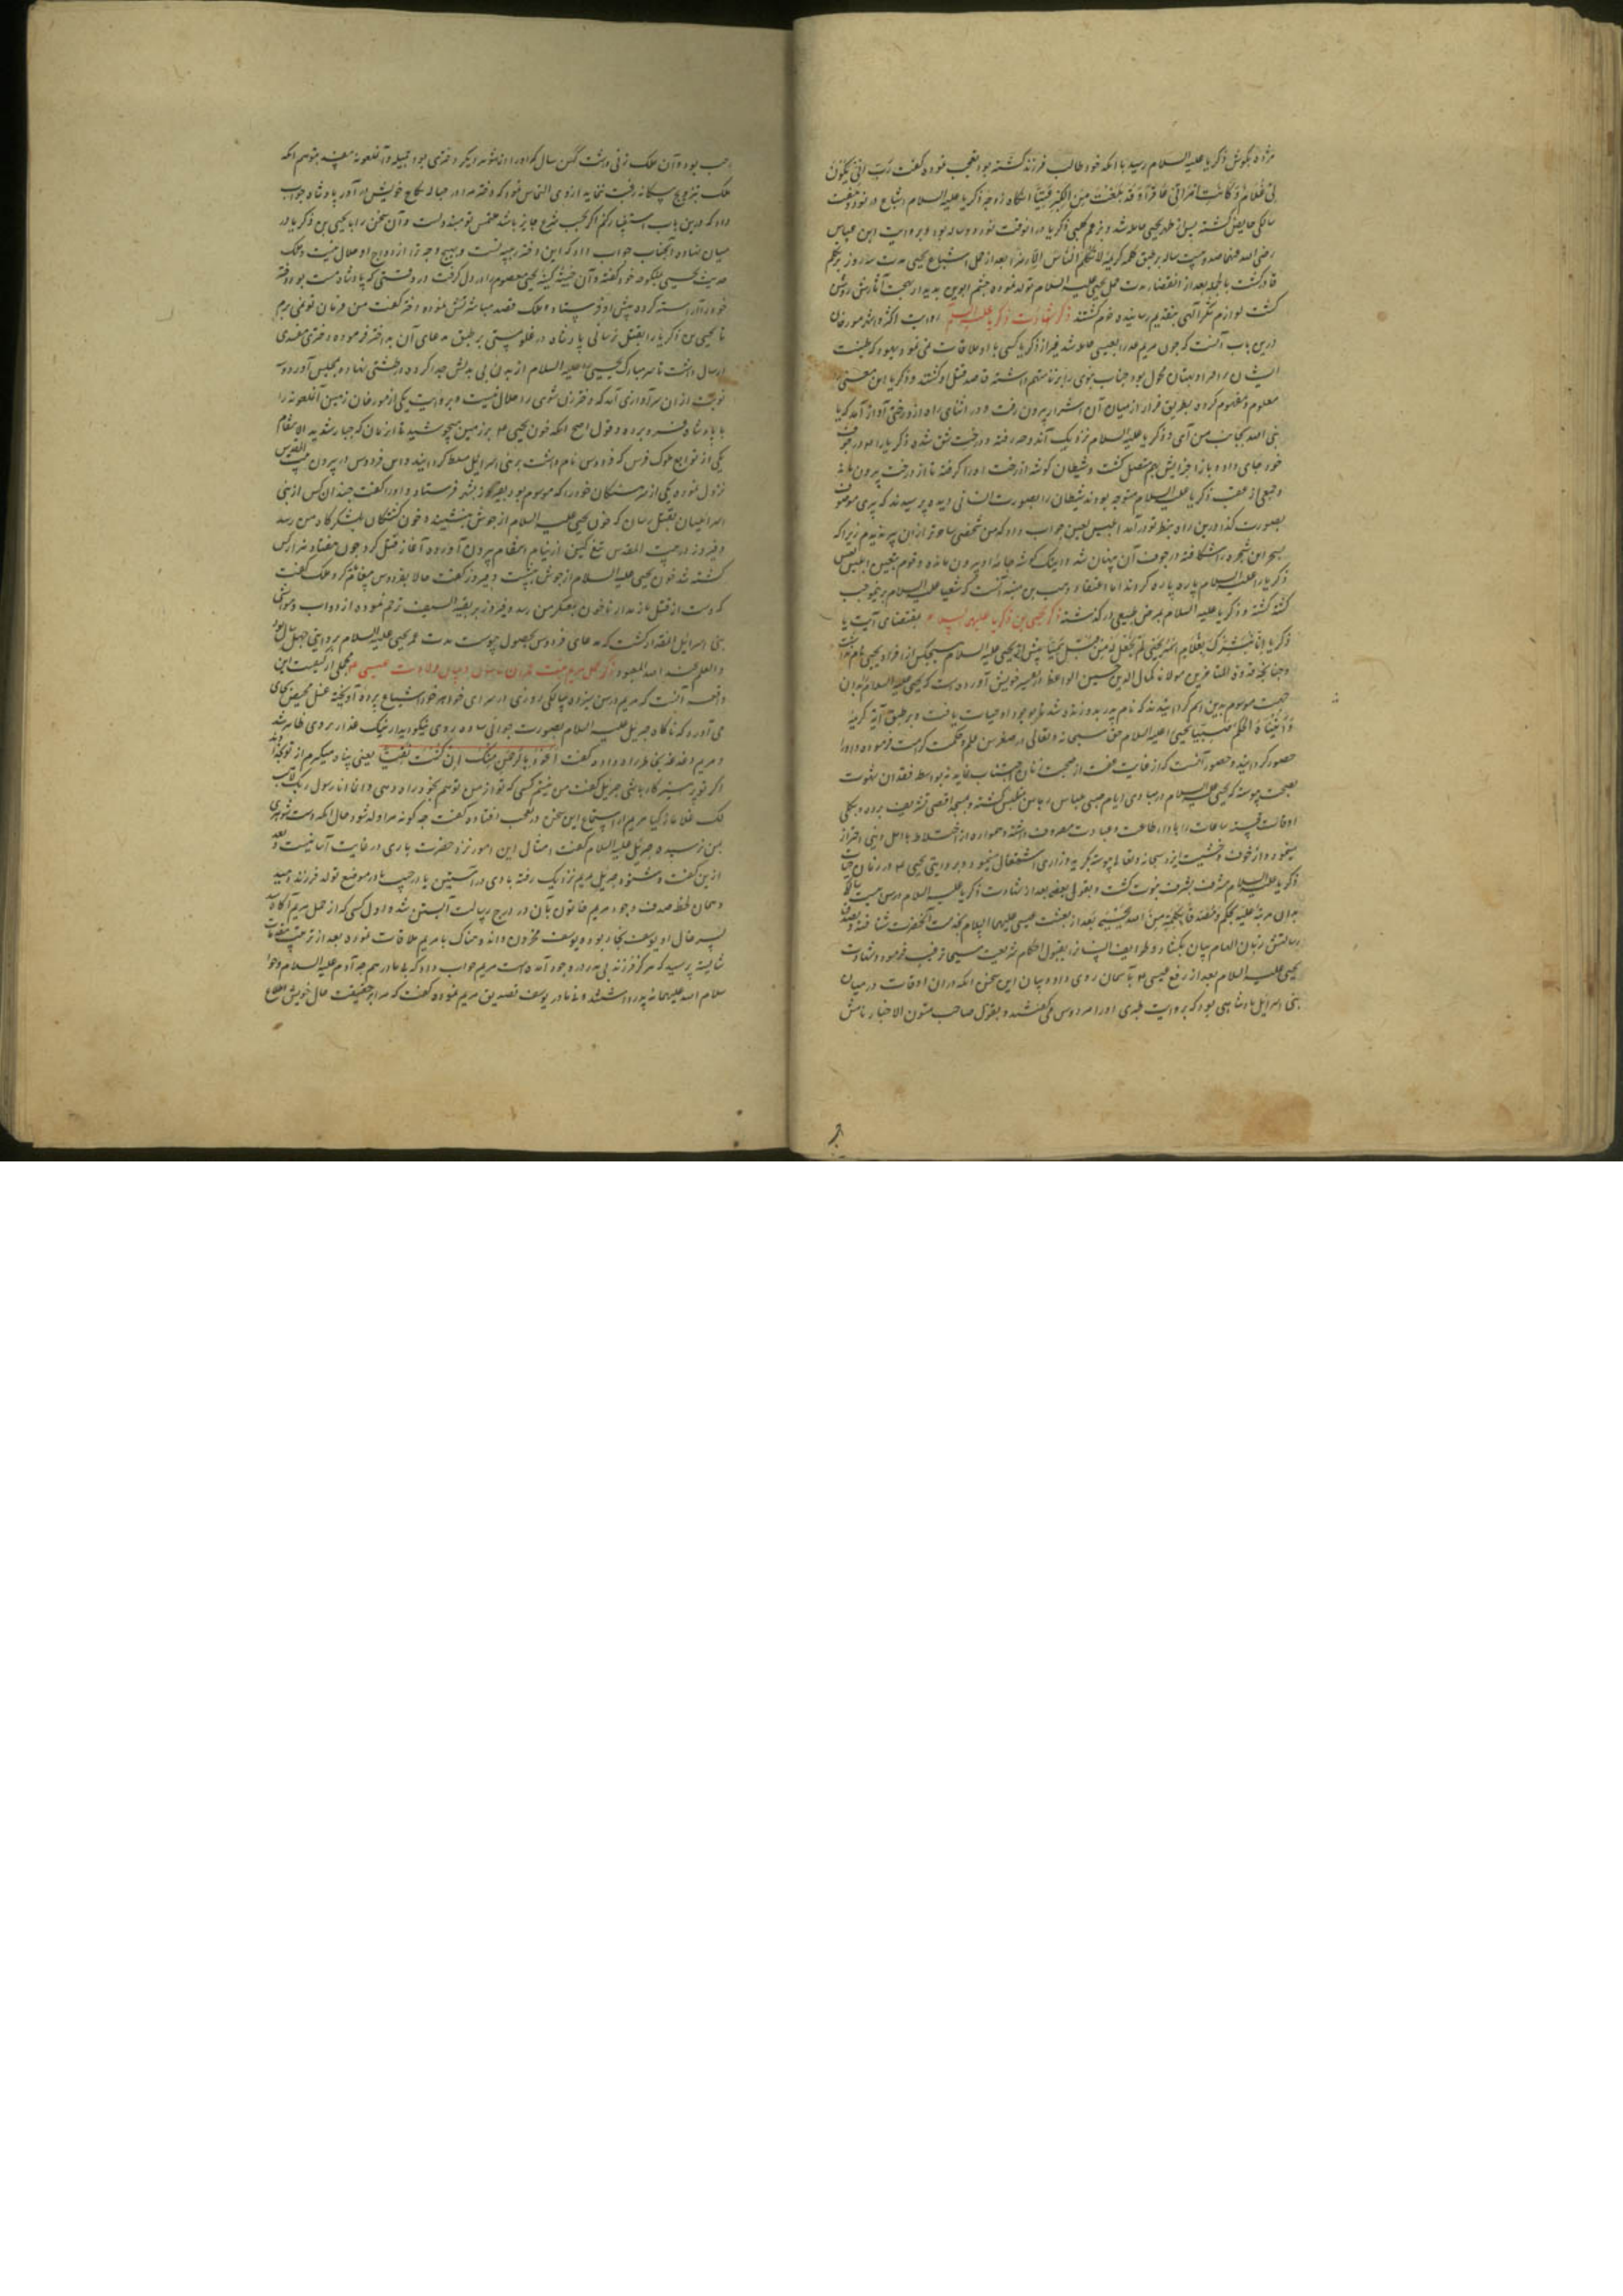 مژده بگوش زکریا علیه السلام رسید با آنکه خود طالب فرزند گشته بود تعجب نموده گفت رب انی یکون
لی غلام و کانت امراتی عاقرا و قد بلغت من الکبر عتیا آنگاه زوجه زکریا علیه السلام اشباع در نود و هشت
سالگی حایض گشته پس از طهر بیحیی حامله شد و بزعم کلبی زکریا در آنوقت نود و دو ساله بود و بروایت ابن عباس
رضی الله عنهما صد و بیست ساله بر طبق کلمه کریمه لا تکلم الناس الا رمزا بعد از حمل اشباع بیحیی مدت سه روز بر تکلم
قادر نگشت بالجمله بعد از انقضاء مدت حمل یحیی علیه السلام تولد نموده چشم ابوین بدیدار بهجت آثارش روشن
گشت لوازم شکر الهی بتقدیم رسانیده خرم گشتند ذکر شهادت زکریا علیه السلام روایت اکثر و اشهر مورخان
درین باب آنست که چون مریم عذرا بعیسی حامله شد غیر از زکریا کسی با او ملاقات نمی نمود و یهود که طینت
ایشان بر افترا و بهتان مجبول بود جناب نبوی را بزنا متهم داشته قاصد قتل او گشتند و زکریا این معنی را
معلوم و مفهوم کرده بطریق فرار از میان آن اشرار بیرون رفت و در اثنای راه از درختی آواز آمد که یا
نبی الله بجانب من آی و زکریا علیه السلام نزدیک آن درخت رفته و درخت شق شده زکریا را در جوف
خود جای داد و باز اجزایش بهم متصل گشت و شیطان گوشه از رخت او را گرفته تا از درخت بیرون ماند
و جمعی از عقب زکریا علیه السلام متوجه بودند شیطان را بصورت انسانی دیده پرسیدند که پیری موصوف
بصورت کذا درین راه بنظر تو درآمد ابلیس لعین جواب داد که من شخصی ساحرتر ازان پیر ندیدم زیرا که
بسحر این شجره را شکافته در جوف آن پنهان شد و اینک گوشه جامه او بیرون مانده و قوم بتعلیم ابلیس
زکریا را علیه السلام پاره پاره کردند اما اعتقاد وهب بن منبه آنست که شعیا علیه السلام برینموجب
کشته گشته و زکریا علیه السلام بمرض طبیعی درگذشته ذکر یحیی بن زکریا علیهما السلام بمقتضای آیت یا
زکریا انا نبشرک بغلام اسمه یحیی لم نجعل له من قبل سمیا پیش از یحیی علیه السلام هیچکس از افراد یحیی نام نداشت
و چنانچه قدوة المتاخرین مولانا کمال الدین حسین الواعظ در تفسیر خویش آورده است که یحیی علیه السلام بدان
جهت موسوم بدین اسم گردانیدند که نام پدر بدو زنده شد بوجود او حیات یافت و بر طبق آیه کریمه
و آتیناه الحکم صبیا یحیی را علیه السلام حق سبحانه و تعالی در صغر سن علم و حکمت کرامت فرموده و او را
حصور گردانید و حصور آنست که از غایت عفت از صحبت زنان اجتناب نماید نه بواسطه فقدان شهوت
بصحت پیوسته که یحیی علیه السلام در مبادی ایام صبی بلباس رهابین متلبس گشته و بمسجد اقصی تشریف برد و بکلی
اوقات خجسته ساعات را باوراد طاعت و عبادت مصروف داشته و همواره از اختلاط با اهل دنیا احتراز
مینمود و از خوف و خشیت ایزد سبحانه و تعالی پیوسته بگریه و زاری اشتغال مینمود و بروایتی یحیی در زمان حیات
زکریا علیه السلام مشرف بشرف نبوت گشت و بقولی بعد از شهادت زکریا علیه السلام
رسالتش زبان الهام بیان بگشاد و طوایف انسان را بقبول احکام شریعت مسیحا ترغیب فرمود و شهادت
یحیی علیه السلام بعد از رفع عیسی بآسمان روی داد و بیان این سخن آنکه دران اوقات در میان
بنی اسرائیل پادشاهی بود که بروایت طبری او را هردوس می گفتند و بقول صاحب متون الاخبار نامش
بود و آن ملک زنی داشت کهن سال که او را از شوهر دیگر دختری بود جمیله و آن ملعونه
داد که درین باب استخبار کنم اگر بحسب شرع جایز باشد ملتمس تو مبذولست و آن سخن را با یحیی بن زکریا در
میان نهاد و آنجناب جواب داد که این دختر ربیبه تست و بهیچ وجه ترا ازدواج او حلال نیست و ملک
حدیث یحیی بمنکوحه خود گفته و آن خبیثه کینه یحیی معصوم در دل گرفت در وقتی که پادشاه مست بود دختر
خود را آراسته کرده پیش او فرستاد و ملک قصد مباشرتش نموده دختر گفت من فرمان تو نمی برم
تا یحیی بن زکریا را بقتل نرسانی پادشاه در غلو مستی بر طبق مدعای آن بداختر فرموده
ارسال داشت تا سر مبارک یحیی علیه السلام از بدن بی بدلش جدا کرده در طشتی نهاده بمجلس آورد و سه
نوبت ازان سر آوازی آمد که دختر زن شوی را حلال نیست و بروایت یکی از مورخان زمین آن ملعونه را
با پادشاه فرو برده و قول اصح آنکه خون یحیی بر زمین میجوشید تا آنزمان که جبار شدید الانتقام
یکی از توابع ملوک فرس که فردوس نام داشت بر بنی اسرائیل مسلط گردانید و این فردوس در بیرون بیت المقدس
نزول نموده یکی از سرهنگان خود را که موسوم بود بفیروز بشهر فرستاد و او را گفت چندان کس از بنی
اسرائیلیان بقتل رسان که خون یحیی علیه السلام از جوش بنشیند و خون کشتگان بلشکرگاه من رسد
و فیروز در بیت المقدس تیغ کین از نیام انتقام بیرون آورده آغاز قتل کرد چون هفتاد هزار کس
کشته شد خون یحیی علیه السلام از جوش بنشست و فیروز گفت حالا بفردوس پیغام کرد ملک گفت
که دست از قتل باز مدار تا خون بعسکر من رسد و فیروز بر بقیه السیف ترحم نموده از دواب و مواشی
بنی اسرائیل آنقدار کشت که مدعای فردوس بحصول پیوست مدت عمر یحیی علیه السلام بروایتی چهل سال بود
والعلم عند الله المعبود ذکر حمل مریم بنت عمران بتول و بیان ولادت عیسی مجملی از کیفیت این
واقعه آنست که مریم در سن سیزده سالگی روزی در سرای خواهر خود اشباع پرده آویخته غسل محیض بجای
می آورد که ناگاه جبریل علیه السلام بصورت جوانی ساده روی نیکو دیدار بروی ظاهر شد
و مریم دغدغه بخاطر راه داده گفت اعوذ بالرحمن منک ان کنت تقیا یعنی پناه میگیرم از تو بخداوند
اگر تو پرهیزگار باشی جبریل گفت من نیستم کسی که تو از من توهم بخود راه دهی و انما انا رسول ربک لاهب
لک غلاما زکیا مریم از استماع این سخن در تعجب افتاده گفت چه گونه مرا ولد شود و حال آنکه دست شوهری
بمن نرسیده جبرئیل علیه السلام گفت امثال این امور نزد حضرت باری در غایت آسانیست و بعد
ازین گفت و شنود جبریل بمریم نزدیک رفته بادی در آستین یا در جیب یا در موضع تولد فرزند دمید
و همان لحظه صدف وجود مریم خاتون بآن در درج رسالت آبستن شد و اول کسی که از حمل مریم آگاه شد
پسر خال او یوسف نجار بود و یوسف محزون و اندوهناک با مریم ملاقات نموده بعد از ترتیب مقدمات
شایسته پرسید که هرگز فرزند بی پدر در وجود آمده است مریم جواب داد که بی مادر هم چه آدم علیه السلام و حوا
سلام الله علیهما نه پدر داشتند و نه مادر یوسف تصدیق مریم نموده گفت که مرا بر حقیقت حال خویش اطلاع